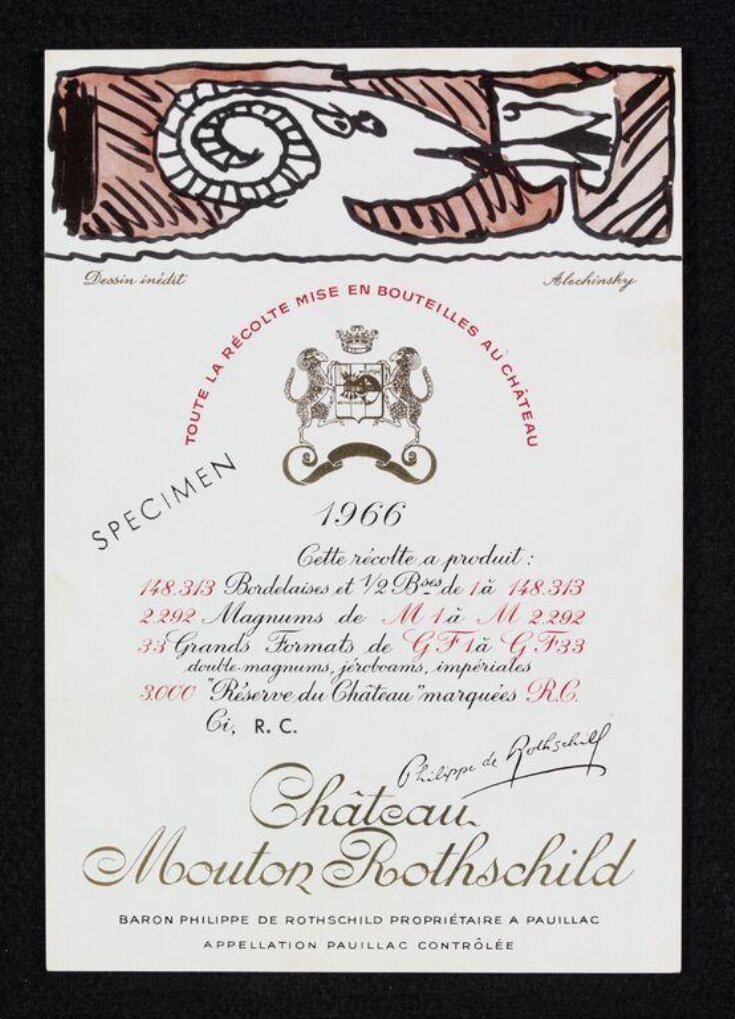 Dessin inédit
Alechinsky
TOUTE LA RÉCOLTE MISE EN BOUTEILLES AU CHÂTEAU
SPECIMEN
1966
Cette récolte a produit :
148.313 Bordelaises et 1/2 Bses de 1 à 148.313
2.292 Magnums de M 1 à M 2.292
33 Grands Formats de G F 1 à G F 33
double-magnums, jéroboams, impériales
3.000 "Réserve du Château" marquées R.C.
Ci, R. C.
Philippe de Rothschild
Château
Mouton Rothschild
BARON PHILIPPE DE ROTHSCHILD PROPRIÉTAIRE A PAUILLAC
APPELLATION PAUILLAC CONTRÔLÉE